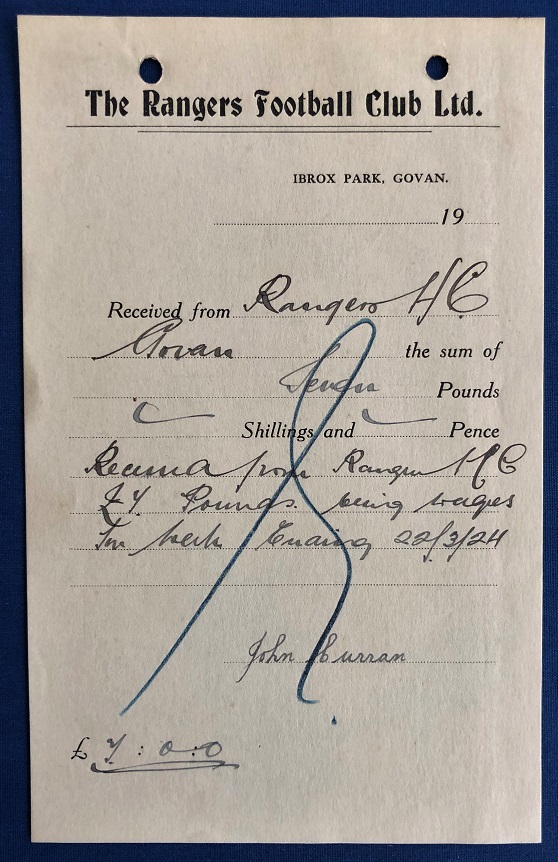 The Rangers Football Club Ltd.
IBROX PARK, GOVAN.
19
Received from Rangers F C
Govan the sum of
Seven Pounds
Shillings and Pence
Received from Rangers F C
£7 Pounds being wages
for week Ending 22/3/24
John Curran
£ 7 : 0 : 0